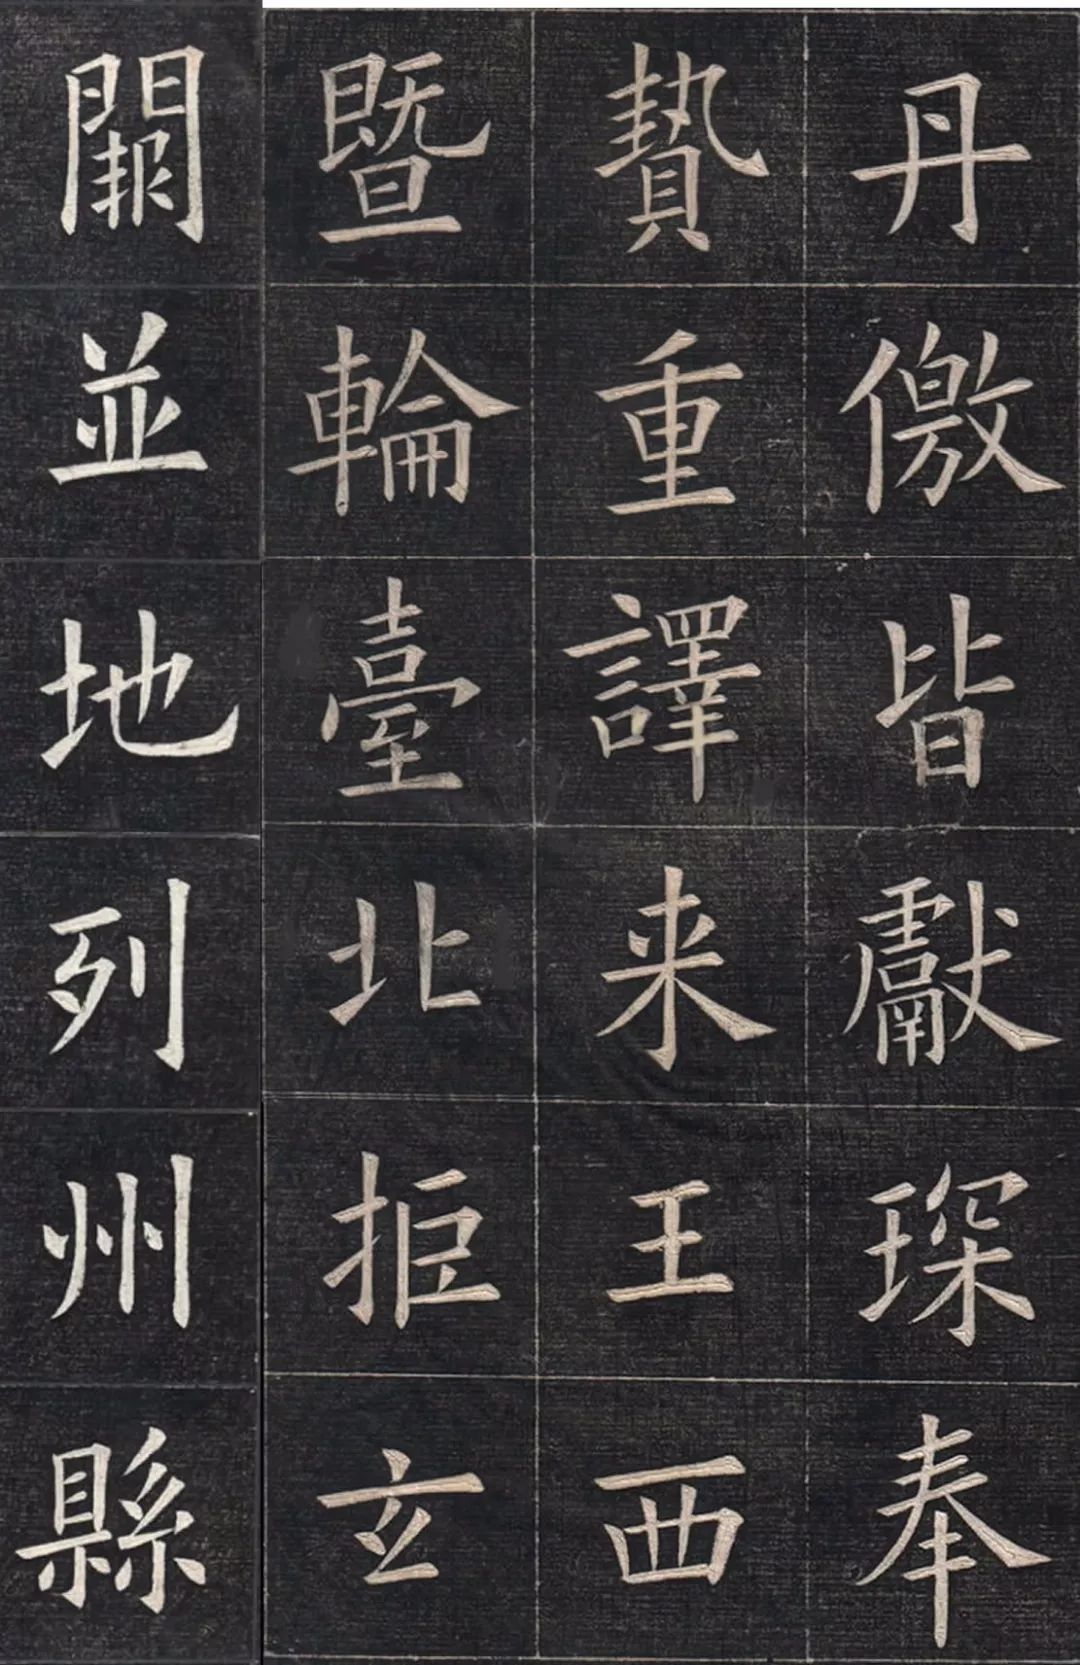 丹僌皆獻琛奉
贄重譯来王西
暨輪臺北拒玄
闕並地列州縣